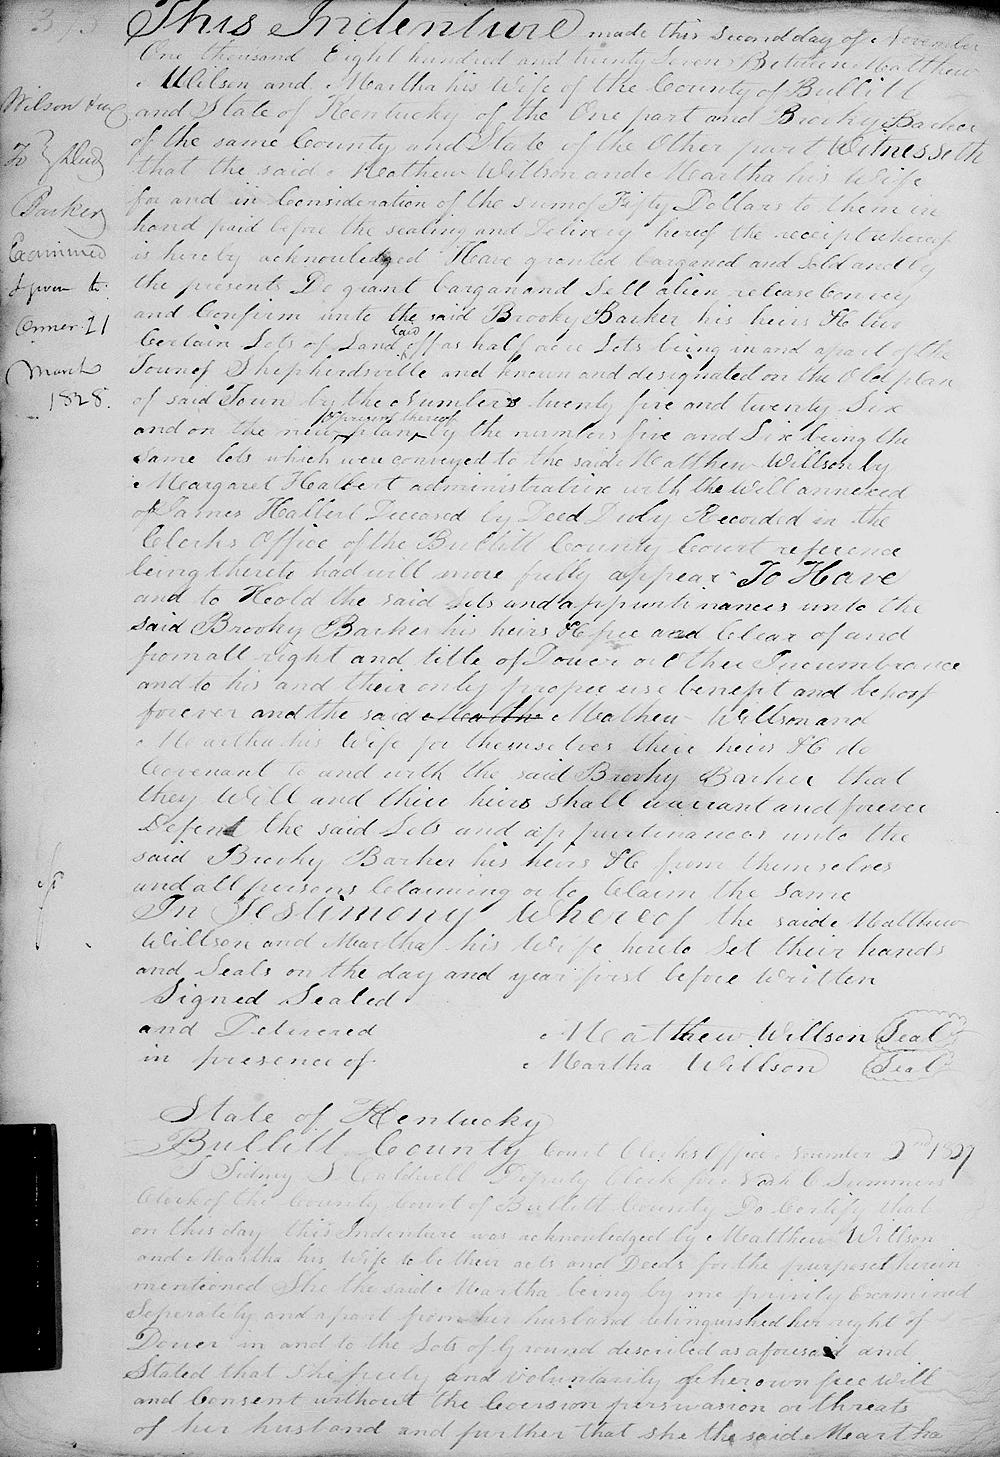 375
This Indenture made this second day of November
One thousand Eight hundred and twenty Seven Between Matthew
Willson and Martha his Wife of the County of Bullitt
and State of Kentucky of the One part and Brooky Barker
of the same County and State of the Other part Witnesseth
that the said Mathew Willson and Martha his Wife
for and in Consideration of the sum of Fifty Dollars to them in
hand paid before the sealing and Delivery hereof the receipt whereof
is hereby acknowledged Have granted barganed and Sold and by
the presents Do grant bargan and Sell alien release Convey
and Confirm unto the said Brooky Barker his heirs &c two
Certain Lots of Land laid off as half acre Lots being in and apart of the
Town of Shepherdsville and known and designated on the Old plan
of said Town by the Numbers twenty five and twenty Six
and on the new plan by the numbers five and Six being the
same lots which were conveyed to the said Matthew Willson by
Margaret Halbert administratrix with the Will annexed
of James Halbert Deceased by Deed Duly Recorded in the
Clerks Office of the Bullitt County Court reference
being thereto had will more fully appear To Have
and to Hold the said Lots and appurtinances unto the
said Brooky Barker his heirs &c free and Clear of and
from all right and title of Dower or Other Incumbrance
and to his and their only proper use benefit and behoof
forever and the said Martha Mathew Willson and
Martha his Wife for themselves their heirs &c do
Covenant to and with the said Brooky Barker that
they Will and their heirs shall warrant and forever
Defend the said Lots and appurtenances unto the
said Brooky Barker his heirs &c from themselves
and all persons Claiming or to Claim the same
In Testimony Whereof the said Matthew
Willson and Martha his Wife hereto Set their hands
and Seals on the day and year first before Written
Signed Sealed
and Delivered
in presence of
Matthew Willson Seal
Martha Willson Seal
Wilson &ux
To Deed
Barker
Examined
& given to
Omer 21
March
1828.
State of Kentucky
Bullitt County Court Clerks Office November 2nd 1827
I Sidney S Caldwell Deputy Clerk for C Summers
Clerk of the County Court of Bullitt County Do Certify that
on this day this Indenture was acknowledged by Matthew Willson
and Martha his Wife to be their acts and Deeds for the purposes herein
mentioned She the said Martha being by me privily Examined
Seperately and apart from her husband relinquished her right of
Dower in and to the Lots of Ground described as aforesaid and
Stated that She freely and voluntarily of her own free will
and Consent without the Coersion perswasion or threats
of her husband and further that she the said Martha